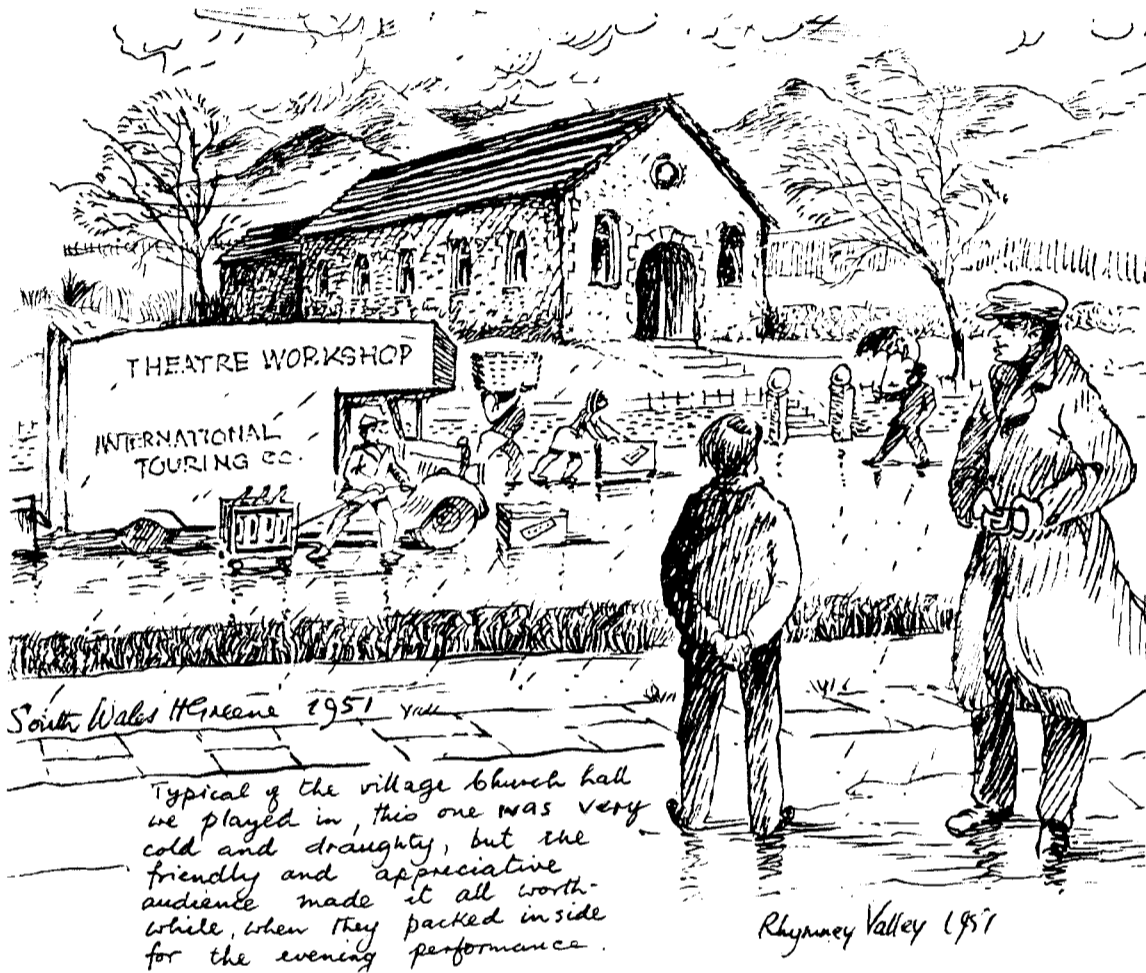 THEATRE WORKSHOP
INTERNATIONAL
TOURING CO.
South Wales HGreene 1951
Typical of the village Church hall
we played in, this one was very
cold and draughty, but the
friendly and appreciative
audience made it all worth-
while, when they packed inside
for the evening performance.
Rhymney Valley 1951